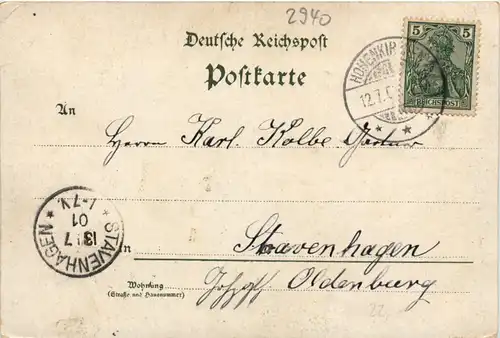 2940
Deutsche Reichspost
Postkarte
5 5
REICHSPOST
HOHENKIR
12.7.
An
Herrn Karl Kolbe
STAVENHAGEN
13 7
01
1-7N.
in
Stavenhagen
Oldenburg
Wohnung
(Straße und Hausnummer)